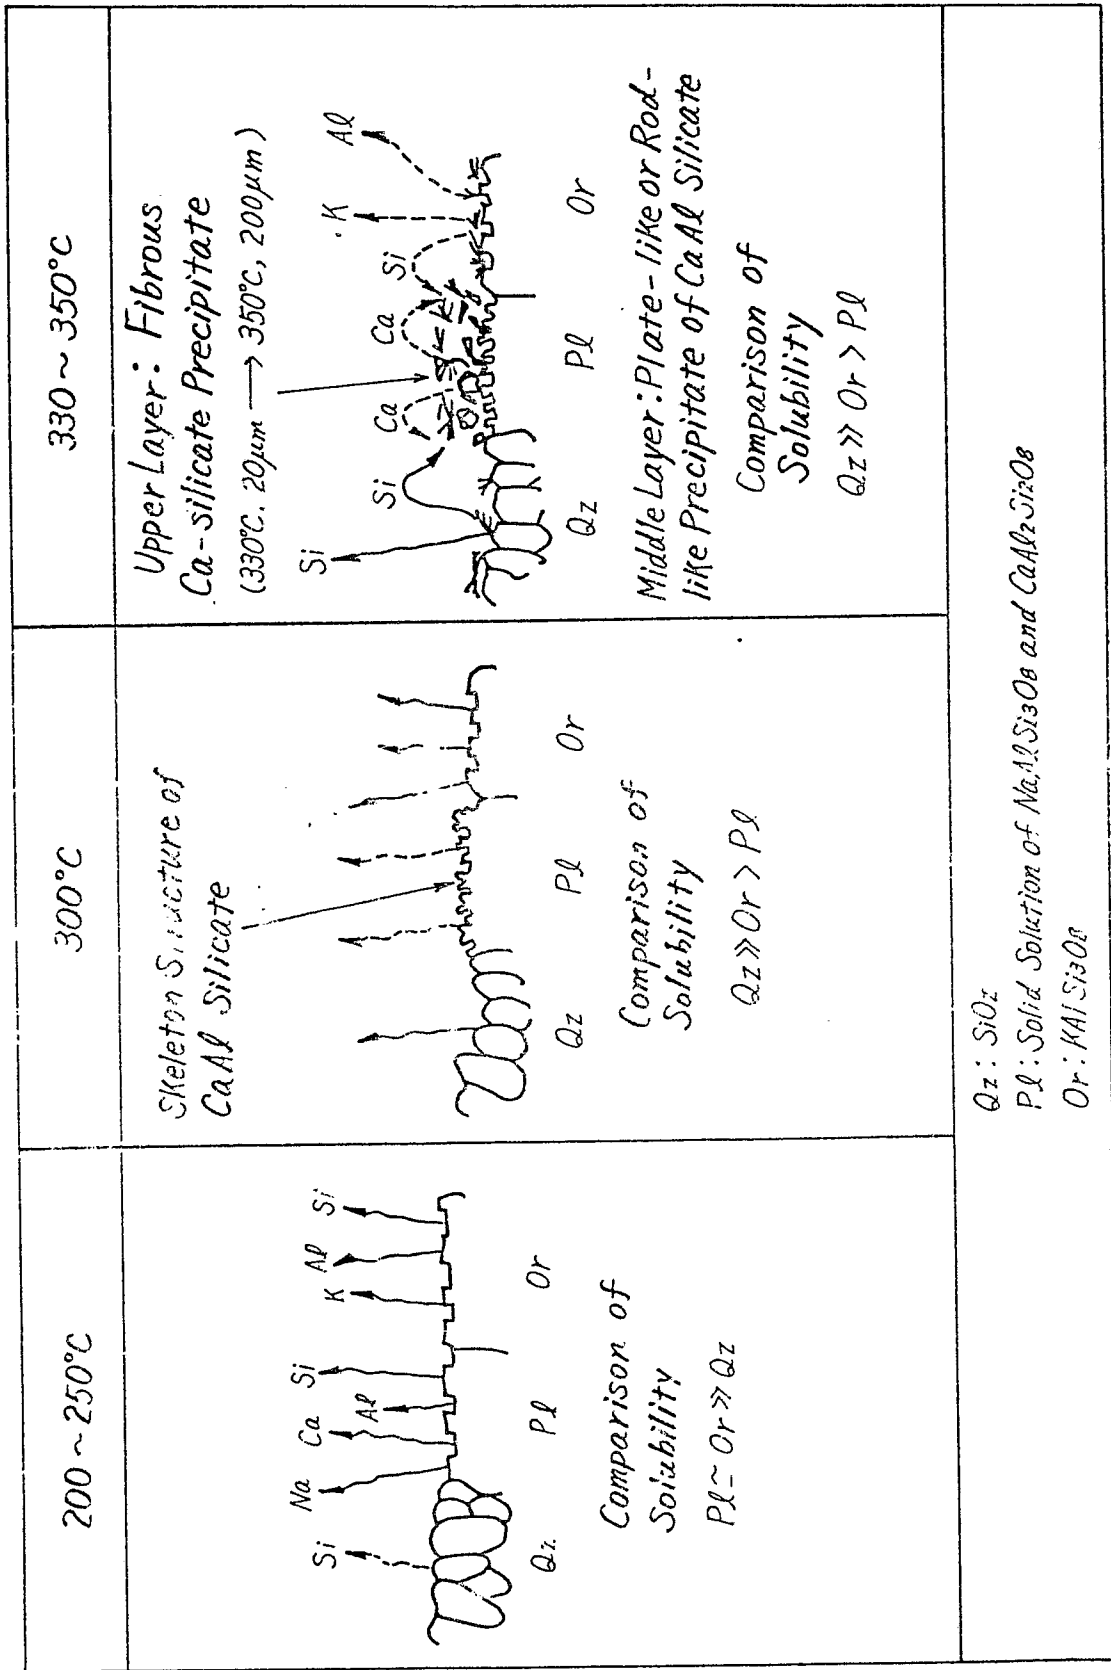 200~250°C
Si
Na
Ca
Al
Si
K
Al
Si
Qz
Pl
Or
Comparison of
Solubility
Pl≃Or≫Qz
300°C
Skeleton Structure of
CaAl Silicate
Qz
Pl
Or
Comparison of
Solubility
Qz≫Or>Pl
330~350°C
Upper Layer: Fibrous
Ca-silicate Precipitate
(330°C. 20μm → 350°C, 200μm)
Si
Si
Ca
Ca
Si
K
Al
Qz
Pl
Or
Middle Layer: Plate-like or Rod-
like Precipitate of CaAl Silicate
Comparison of
Solubility
Qz≫Or>Pl
Qz: SiO2
Pl: Solid Solution of NaAlSi3O8 and CaAl2Si2O8
Or: KAlSi3O8